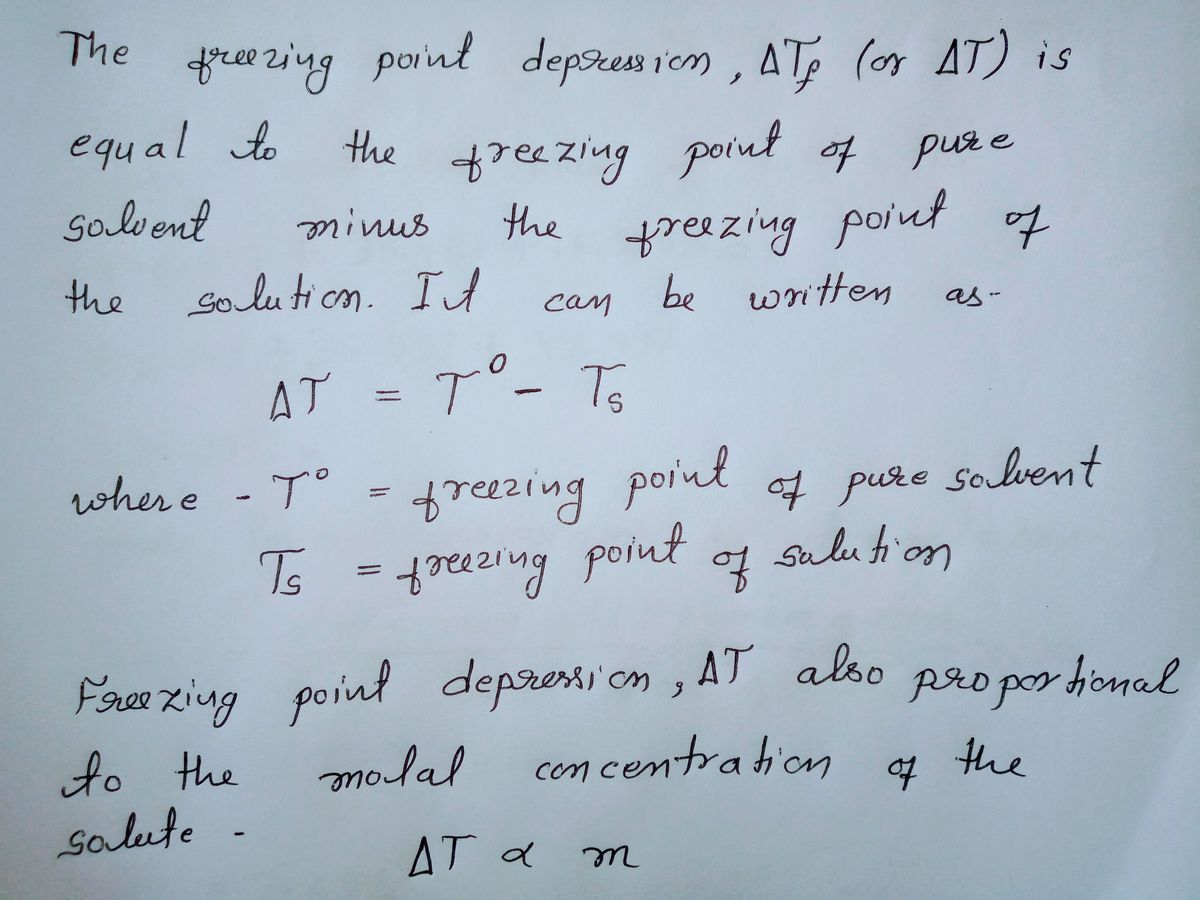 The freezing point depression, ΔTf (or ΔT) is
equal to the freezing point of pure
solvent minus the freezing point of
the solution. It can be written as-
ΔT = T° - Ts
where - T° = freezing point of pure solvent
Ts = freezing point of solution
Freezing point depression, ΔT also proportional
to the molal concentration of the
solute -
ΔT α m